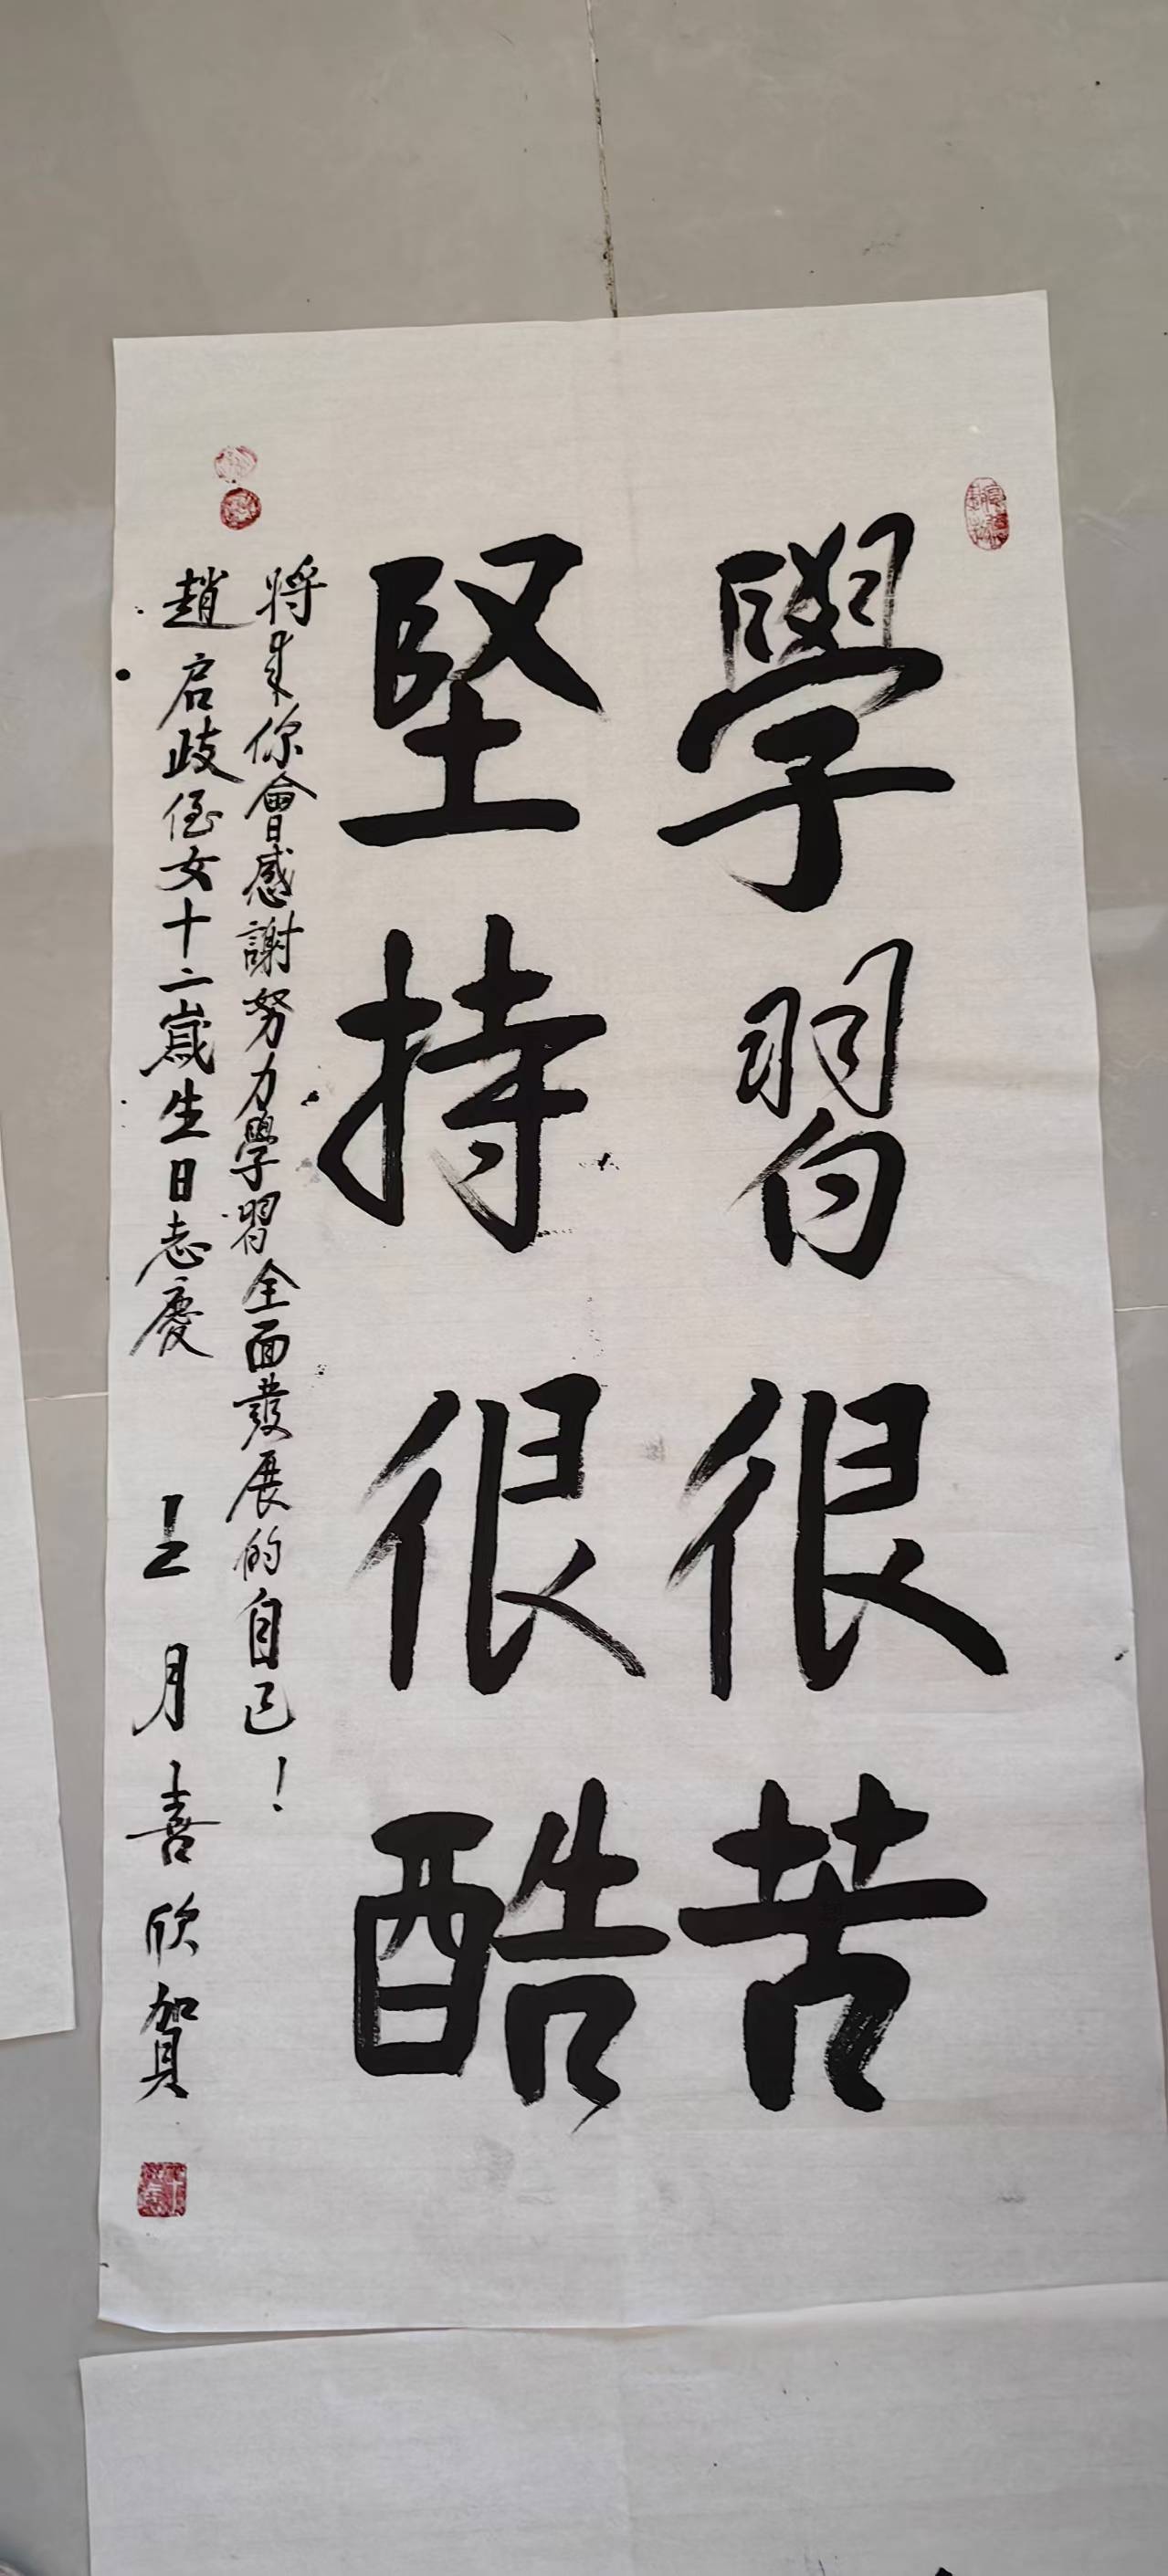 學習很苦
堅持很酷
將來你會感謝努力學習全面發展的自己！
趙启歧侄女十二歲生日志慶 王月喜欣賀